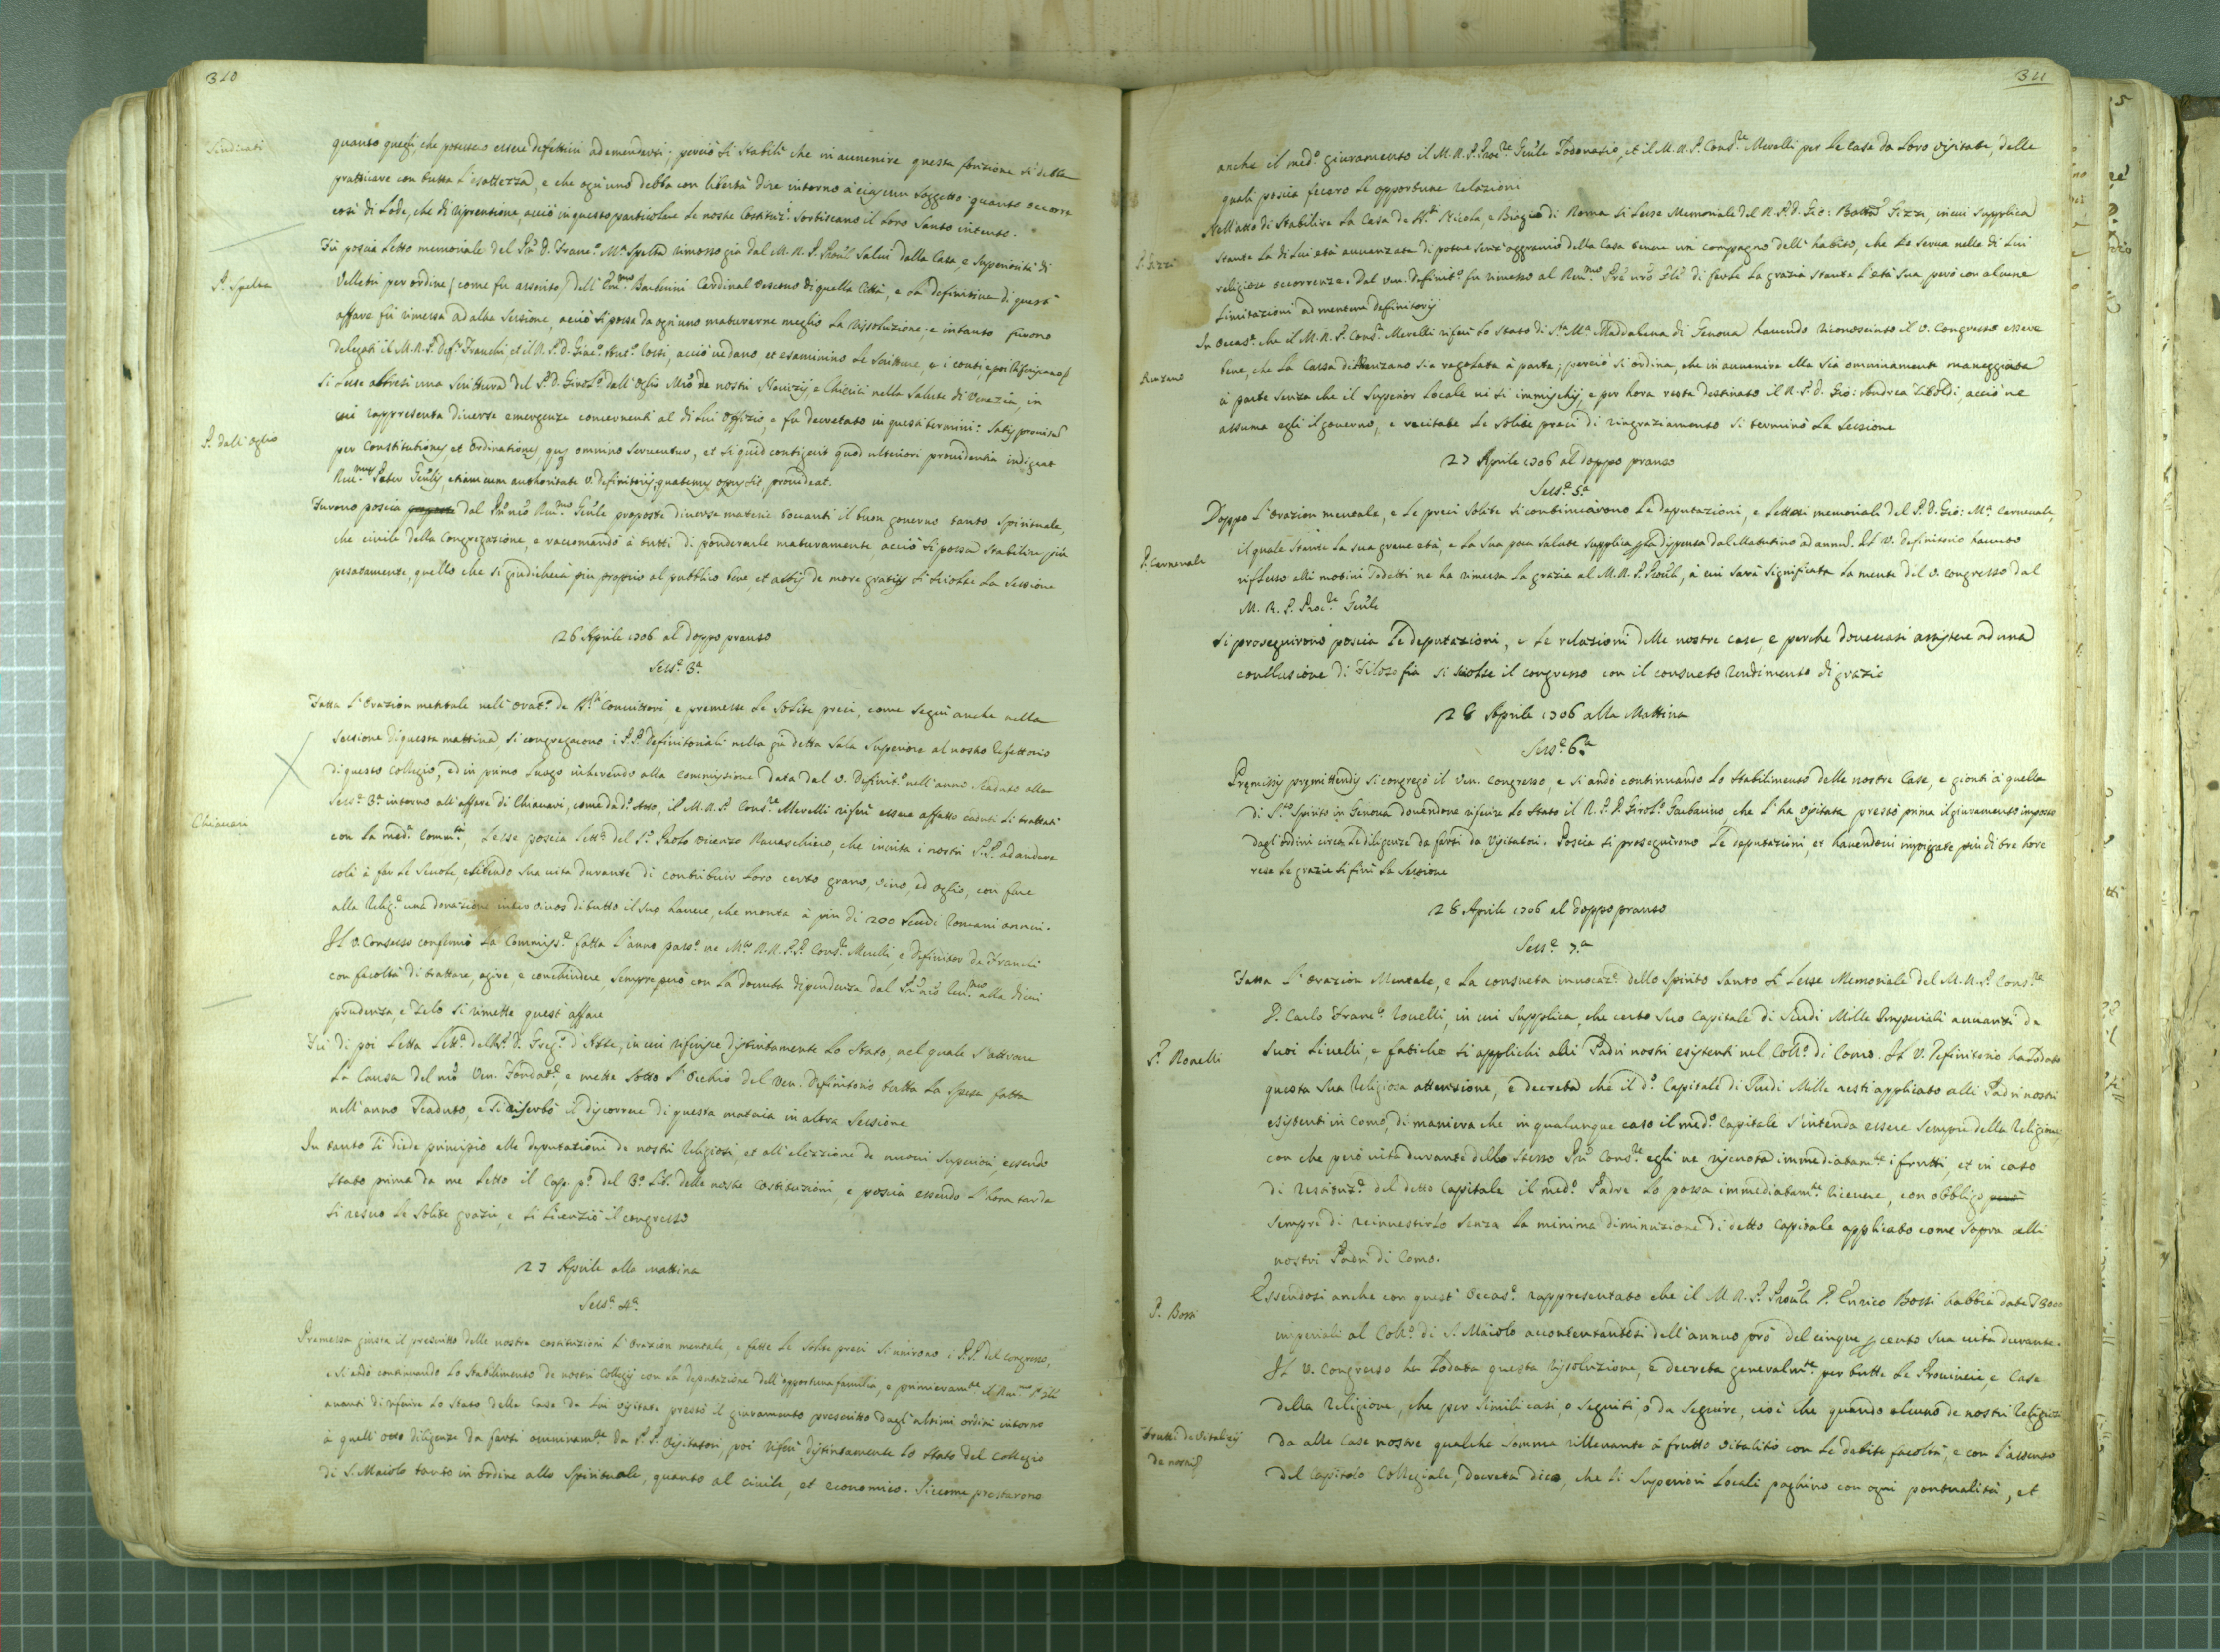 310
Sindicati
quanto quegli, che potessero essere difettivi ad emendarsi; perciò si stabilì che in avvenire questa fonzione si debba
pratticare con tutta l'esattezza, e che ogn'uno debba con libertà dire intorno à ciascun soggetto quanto occorre
così di lode, che di riprensione, acciò in questo particolare le nostre Costituz.i sortiscano il loro santo intento.
P. Spelta
Fù poscia letto memoriale del P. D. Franc.o M.a Spelta rimosso già dal M. R. P. Prou.le Salui dalla Casa, e Superiorità di
Velletri per ordine (come fù asserito) dell' Em.mo Barberini Cardinal Vescovo di quella Città, e la definitiva di quest'
affare fù rimessa ad altra Sessione, acciò si possa da ogn'uno maturarne meglio la risoluzione; e intanto furono
delegati il M. R. P. Def.r Franchi et il R. P. D. Giac.o Ant.o Rossi, acciò vedano et esaminino le scritture, e i conti, e poi
P. dall'Oglio
Si lesse altresì una Scrittura del P. D. Girol.o dall'Oglio Mro de nostri Novizij, e Chierici nella Salute di Venezia, in
cui rappresenta diverse emergenze concernenti al di lui offizio, e fu decretato in questi termini: Satis provisum
per Constitutiones et Ordinationes, quae omnino serventur, et si quid contigerit quod ulteriori providentia indigeat
Reu.mus Pater Gen̄lis, etiam cum authoritate V. Definitorij, quatenus opus sit, provideat.
Furono poscia dal P. nrõ Reu.mo Gen̄le proposte diverse materie toccanti il buon governo tanto spirituale,
che civile della Congregazione, e raccomandò à tutti di ponderarle maturamente acciò si possa stabilire più
pesatamente, quello che si giudicherà più proprio al pubblico bene, et actis de more gratijs si sciolse la Sessione
26 Aprile 1706 al doppo pranso
Sess.e 3.a
Fatta l'Orazion mentale nell'Orat.o de Sig.ri Convittori, e premesse le solite preci, come seguì anche nella
sessione di questa mattina, si congregarono i P.P. Definitoriali nella già detta sala superiore al nostro Refettorio
di questo Collegio, ed in primo luogo inherendo alla commissione data dal V. Definit.o nell'anno scaduto alla
Chiavari
Sess.e 3.a intorno all'affare di Chiavari, come da d.o Atto, il M. R. P. Cons.re Merelli riferì essere affatto caduti li trattati
con la med.a Comm.tà, lesse poscia lett.a del S.r Paolo Vicenzo Ravaschiero, che invita i nostri P.P. ad andare
colà à far le scuole, esibendo sua vita durante di contribuir loro certo grano, vino, ed oglio, con fare
alla Relig.e una donazione inter vivos di tutto il suo havere, che monta à più di 200 scudi Romani annui.
Il V. Consesso confermò la Commiss.e fatta l'anno pass.o ne M.to R.R. P.P. Cons.re Merelli, e Definitor de Franchi
con facoltà di trattare, agire, e conchiudere, sempre però con la dovuta dipendenza dal P. nrõ Reu.mo alla di cui
prudenza, e zelo si rimette quest'affare
Fù di poi letta lett.a del P. D. Greg.o d'Aste, in cui riferisce distintamente lo stato, nel quale s'attrova
la Causa del nrõ Ven. Fondat.re, e mette sotto l'occhio del Ven. Definitorio tutta la spesa fatta
nell'anno scaduto, e si riserbò il discorrere di questa materia in altra Sessione
In tanto si diede principio alle deputazioni de nostri Religiosi, et all'elezzione de nuovi Superiori essendo
stato prima da me letto il Cap. p.o del 3.o Lib. delle nostre Costituzioni, e poscia essendo l'hora tarda
si resero le solite grazie, e si licenziò il congresso
27 Aprile alla mattina
Sess.e 4.a
Premessa giusta il prescritto delle nostre costituzioni l'Orazion mentale, e fatte le solite preci si unirono i P.P. del congresso,
e si andò continuando lo stabilimento de nostri Collegij con la deputazione dell'opportuna famiglia, e primieram.te il Reu.mo P. Gle
avanti di riferire lo stato delle Case da lui visitate prestò il giuramento prescritto dagl'ultimi ordini intorno
à quell'otto diligenze da farsi omninam.te da P.P. Visitatori, poi riferì distintamente lo stato del Collegio
di S. Maiolo tanto in ordine allo spirituale, quanto al civile, et economico. Siccome prestarono
311
anche il med.o giuramento il M. R. P. Proc.re Gen̄le Todonasio, et il M. R. P. Cons.re Merelli per le case da loro visitate, delle
quali poscia fecero le opportune relazioni
P. Gizzi
Nell'atto di stabilire la Casa de SS.ti Nicola, e Biagio di Roma si lesse Memoriale del R. P. D. Gio: Batta Gizzi, in cui supplica
stante la di lui età avvanzata di poter senz'aggravio della Casa tenere un compagno dell'habito, che lo serva nelle di lui
religiose occorrenze. Dal ven. Definit.o fu rimesso al Reu.mo Prẽ nrõ Gle di farle la grazia stante l'età sua però con alcune
limitazioni ad mentem Definitorij
Rivzano
In occas.e che il M. R. P. Cons.re Merelli riferì lo stato di S.ta M.a Maddalena di Genova havendo riconosciuto il V. Congresso essere
bene, che la Cassa di Renzano sia regolata à parte; perciò si ordina, che in avvenire ella sia omninamente maneggiata
à parte senza che il superior locale vi si immischij, e per hora resta destinato il R. P. D. Gio: Andrea Tiboldi, acciò ne
assuma egli il governo, e recitate le solite preci di ringraziamento si terminò la sessione
27 Aprile 1706 al doppo pranso
Sess.e 5.a
P. Carnevale
Doppo l'Orazion mentale, e le preci solite si cominciarono le deputazioni, e lettosi memoriale del P. D. Gio: M.a Carnevale,
il quale stante la sua grave età, e la sua poca salute supplica p la dispensa dal Matutino ad annum. Il V. Definitorio havuto
riflesso alli motivi sodetti ne ha rimessa la grazia al M. R. P. Prou.le, à cui sarà significata la mente del V. Congresso dal
M. R. P. Proc.re Gen̄le
Si proseguirono poscia le deputazioni, e le relazioni delle nostre case, e perche dovevasi assistere ad una
conclusione di Filosofia si sciolse il congresso con il consueto rendimento di grazie
28 Aprile 1706 alla Mattina
Sess.e 6.a
Premissis premittendis si congregò il Ven. Congresso, e si andò continuando lo stabilimento delle nostre Case, e gionti à quella
di S.to Spirito in Genova dovendone riferire lo stato il R. P. D. Girol.o Garbarino, che l'ha visitata prestò prima il giuramento imposto
dagl'ordini circa le diligenze da farsi da Visitatori. Poscia si proseguirono le deputazioni, et havendovi impiegate più di tre hore
rese le grazie si finì la Sessione
28 Aprile 1706 al doppo pranso
Sess.e 7.a
Fatta l'Orazion Mentale, e la consueta invocaz.e dello Spirito Santo si lesse Memoriale del M. R. P. Cons.re
P. Rovelli
D. Carlo Franc.o Rovelli, in cui supplica, che certo suo capitale di Scudi Mille Imperiali avvanzi de
suoi livelli, e fatiche si applichi alli Padri nostri esistenti nel Coll.o di Como. Il V. Definitorio ha lodato
questa sua Religiosa attenzione, e decreta che il d.o Capitale di Scudi Mille resti applicato alli Padri nostri
esistenti in Como, di maniera che in qualunque caso il med.o Capitale s'intenda essere sempre della Religione
con che però vita durante dello stesso Prẽ Cons.re egli ne riscuota immediatam.te i frutti, et in caso
di restituz.e del detto Capitale il med.o Padre lo possa immediatam.te ricevere, con obbligo però
sempre di reinvestirlo senza la minima diminuzione di detto Capitale applicato come sopra alli
nostri Padri di Como.
P. Bossi
Essendosi anche con quest'occas.e rappresentato che il M. R. P. Prou.le P. Enrico Bossi habbia date
imperiali al Coll.o di S. Maiolo accontentandosi dell'annuo prò del cinque p cento sua vita durante.
Il V. Congresso ha lodata questa risoluzione, e decreta generalm.te per tutte le Provincie, e Case
della Religione, che per simili casi, o seguiti, ò da seguire, cioè che quando alcuno de nostri Religiosi
Frutti de vitalizij
de nostri
da alle Case nostre qualche somma rillevante à frutto vitalitio con le debite facoltà, e con l'assenso
del Capitolo Collegiale, decreta dico, che li Superiori locali paghino con ogni pontualità, et